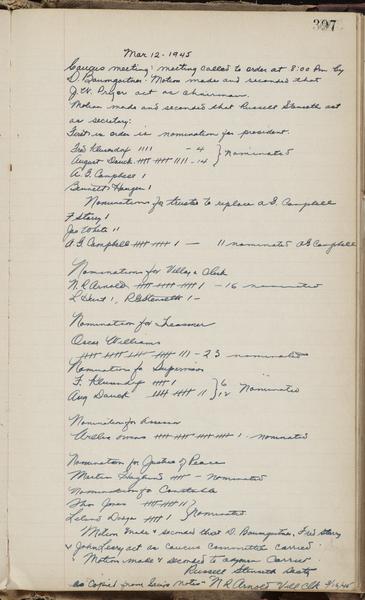 397
Mar 12 - 1945
Caucus meeting: meeting called to order at 8:00 P.m. by
D. Baumgartner. Motion made and seconded that
J. W. Pryor act as chairman.
Motion made and seconded that Russell act
as secretary.
First in order is nomination for president.
Fred 1111 - 4
August Dauck 1111 - 14 } nominated
A. G. Campbell 1
Bennett 1
Nominations for trustee to replace A G. Campbell
F Story 1
Joe White 11
A G Campbell 1 — 11 nominated A G Campbell
Nominations for Village Clerk
N. R. Arnold 1 - 16 nominated
L 1, 1 -
Nomination for Treasurer
Oscar Williams
111 - 23 nominated
Nomination for Supervisor
F. 1 } 6
Aug Dauck 11 } 12 Nominated
Nomination for Assessor
Owens 1. nominated
Nomination for Justice of Peace
Martin - Nominated
Nominations for Constable
Jones 11
Leland 1 } nominated
Motion made & seconded that D. Baumgartner, Fred Story
& John act as Caucus Committee carried
Motion made & seconded to carried
Russell Secty
as Copied from Notes N. R. Arnold Vill Clk